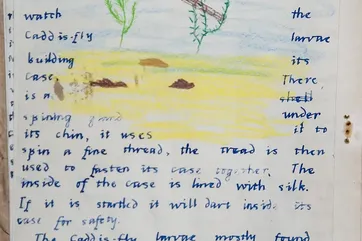 watch the
Caddis-fly larvae
building its
Case. There
is a shell
spining gland under
its chin, it uses it to
spin a fine thread, the tread is then
used to fasten its case together. The
inside of the case is lined with silk.
If it is startled it will dart inside its
case for safety.
The Caddis-fly larvae mostly found